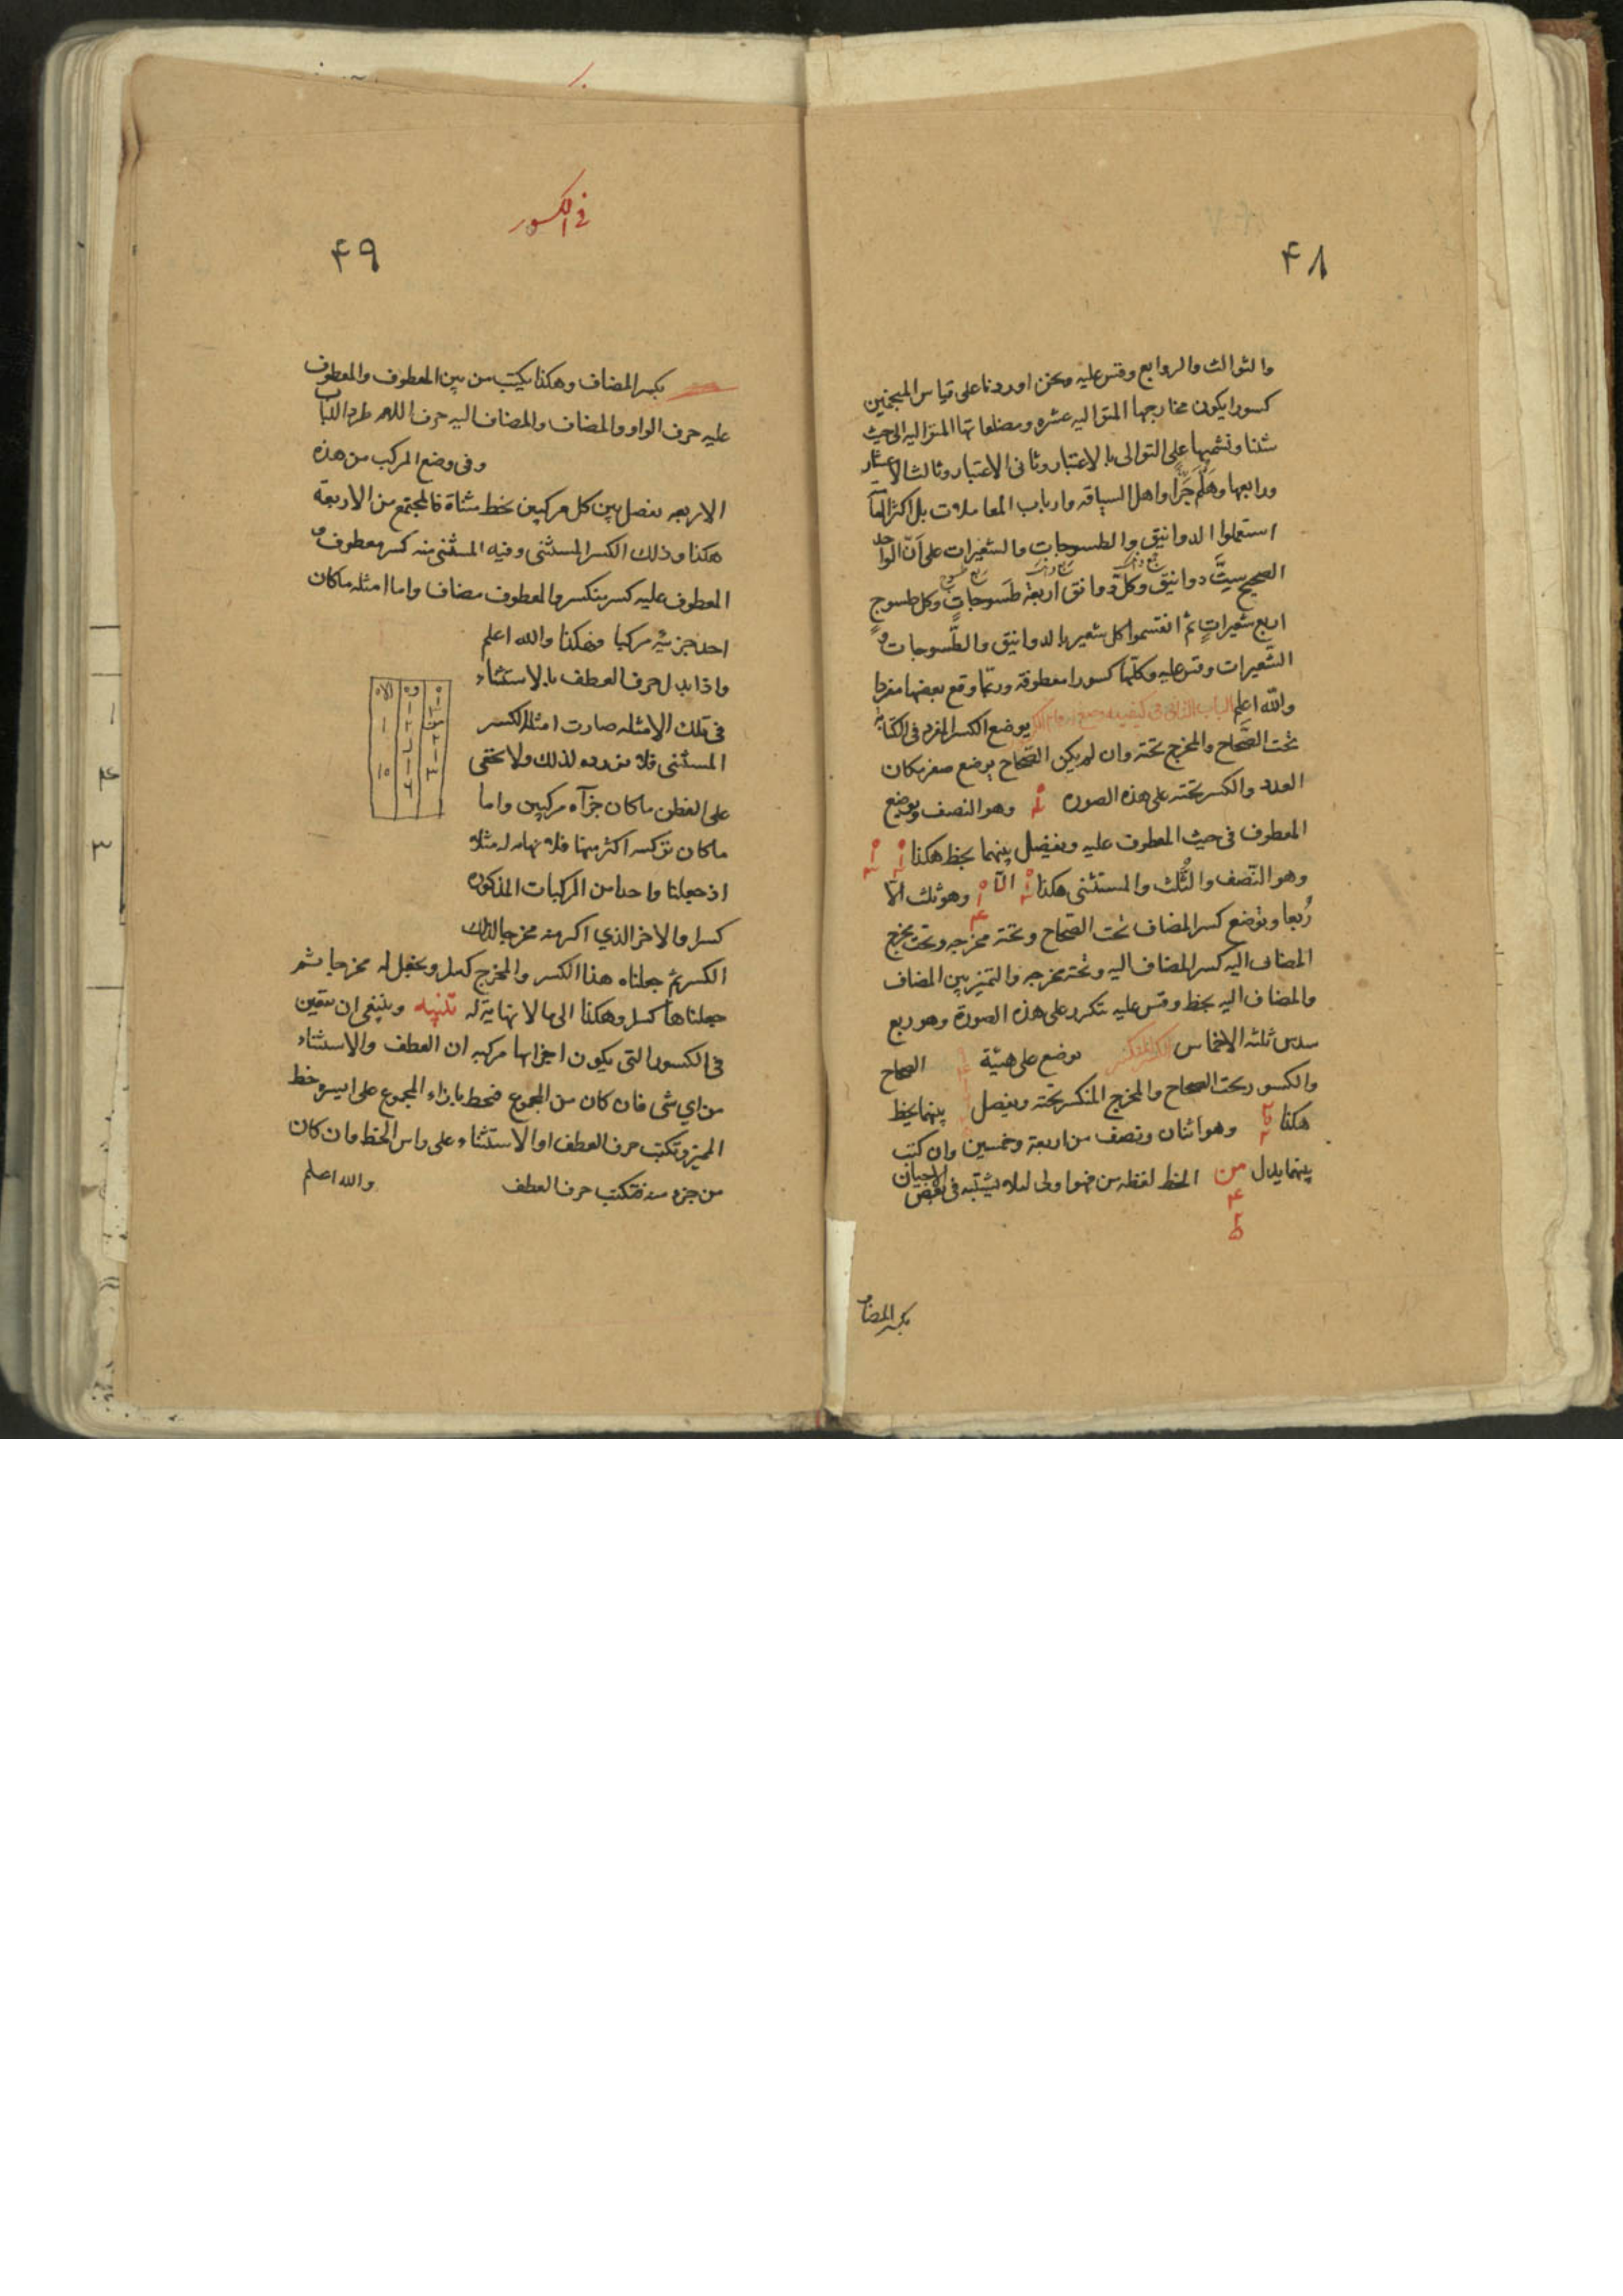 ٤٨
والثوالث والروابع وقس عليه ونحن اوردنا على قياس المنجمين
كسورا يكون مخارجها المتواليه عشره ومضلعاتها المتواليه الى حيث
شئنا ونسميها على التوالى بالاعتبار وثانى الاعتبار وثالث الاعشار
ورابعها وهَلُمَّ جَرًّا واهل السياقه وارباب المعاملات بل اكثر
استعملوا الدوانيق والطسوجات والشعيرات على اَنّ الواحد
الصحيح سِتَّ دوانيق وكلّ دوانق اربعة طسوجاتٍ وكل طسوجٍ
اربع شعيراتٍ ثم انقسموا كل شعير بالدوانيق والطّسوجات و
الشعيرات وقس عليه وكلّها كسورا معطوفة وربّما وقع بعضها مفردا
والله اعلم الباب الثانى فى كيفيه وضع ارقام الكسور يوضع الكسر المفرد فى الكتابة
تحت الصَّحاح والمخرج تحته وان لم يكن الصّحاح يوضع صفر مكان
العدد والكسر تحته على هذه الصوره وهو النصف ويوضع
المعطوف فى حيث المعطوف عليه ويفصل بينهما بخط هكذا
وهو النّصف والثُّلث والمستثنى هكذا الّا وهو ثلث الّا
رُبعا ويوضع كسر المضاف تحت الصّحاح وتحته مخرجه وتحت مخرج
المضاف اليه كسر المضاف اليه وتحته مخرجه والتميز بين المضاف
والمضاف اليه بخط وقس عليه متكرر على هذه الصورة وهو ربع
سدس ثلثة الاخماس الكسر المنكسر يوضع على هيئة الصحاح
والكسور تحت الصحاح والمخرج المنكسر تحته ويفصل بينهما بخط
هكذا وهو اثنان ونصف من اربعة وخمسين وان كتب
بينهما بدل من الخط لفظه من فهو اولى لئلا يشتبه فى بعض الاحيان
بكسر المضاف
فى الكسور
٤٩
بكسر المضاف وهكذا يكتب من بين المعطوف والمعطوف
عليه حرف الواو والمضاف والمضاف اليه حرف اللام طردا للباب
وفى وضع المركب من هذه
الاربعه نفصل بين كل مركبين بخط مثناة فالمجتمع من الاربعة
هكذا وذلك الكسر المستثنى وفيه المستثنى منه كسر معطوف و
المعطوف عليه كسر منكسر والمعطوف مضاف واما امثله ما كان
احد جزئيه مركبا فهكذا والله اعلم
واذا بدل حرف العطف بالاستثناء
فى تلك الامثله صارت امثله الكسر
المستثنى فلا نورده لذلك ولا يخفى
على الفطن ما كان جزآه مركبين واما
ما كان تركبه اكثر منها فلا نهايه له مثلا
اذ جعلنا واحدا من المركبات المذكوره
كسرا والاخر الذي اكبر منه مخرجا لذلك
الكسر ثم جعلناه هذا الكسر والمخرج كسرا ونجعل له مخرجا ثم
جعلناها كسرا وهكذا الى ما لا نهاية له تنبيه وينبغى ان يتعين
فى الكسور التى يكون اجزائها مركبه ان العطف والاستثناء
من اي شى فان كان من المجموع فنخط بازاء المجموع على ايسره خط
المميز ونكتب حرف العطف او الاستثناء على راس الخط وان كان
من جزء منه فنكتب حرف العطف والله اعلم